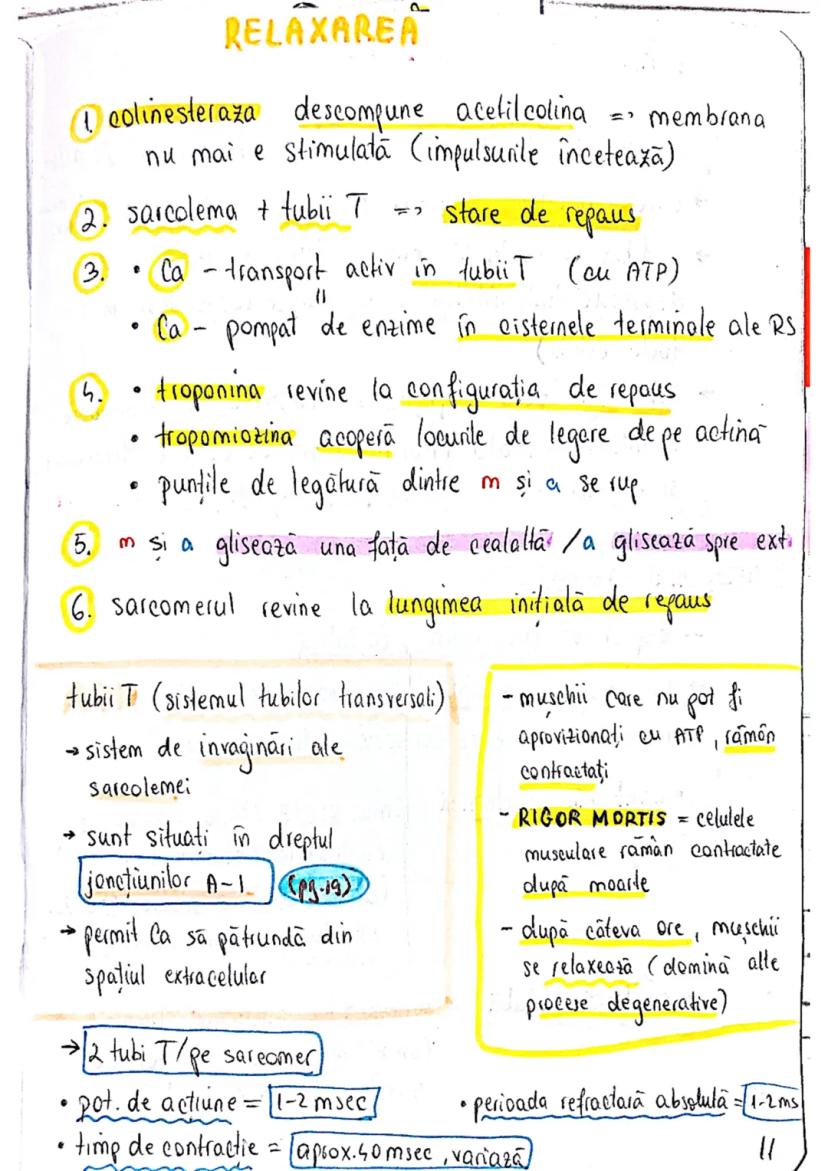 RELAXAREA
1. colinesteraza descompune acetilcolina => membrana
nu mai e stimulată (impulsurile încetează)
2. sarcolema + tubii T => stare de repaus
3. • Ca - transport activ în tubii T (cu ATP)
• Ca - pompat de enzime în cisternele terminale ale RS
4. • troponina revine la configurația de repaus
• tropomiozina acoperă locurile de legare de pe actină
• punțile de legătură dintre m și a se rup
5. m și a glisează una față de cealaltă / a glisează spre ext.
6. sarcomerul revine la lungimea inițială de repaus
tubii T (sistemul tubilor transversali)
→ sistem de invaginări ale
sarcolemei
→ sunt situați în dreptul
joncțiunilor A-I (pg.19)
→ permit Ca să pătrundă din
spațiul extracelular
- mușchii care nu pot fi
aprovizionați cu ATP, rămân
contractați
- RIGOR MORTIS = celulele
musculare rămân contractate
după moarte
- după câteva ore, mușchii
se relaxează (domină alte
procese degenerative)
→ 2 tubi T/pe sarcomer
• pot. de acțiune = 1-2 msec
• perioada refractară absolută = 1-2 ms
• timp de contracție = aprox. 40 msec, variază
11